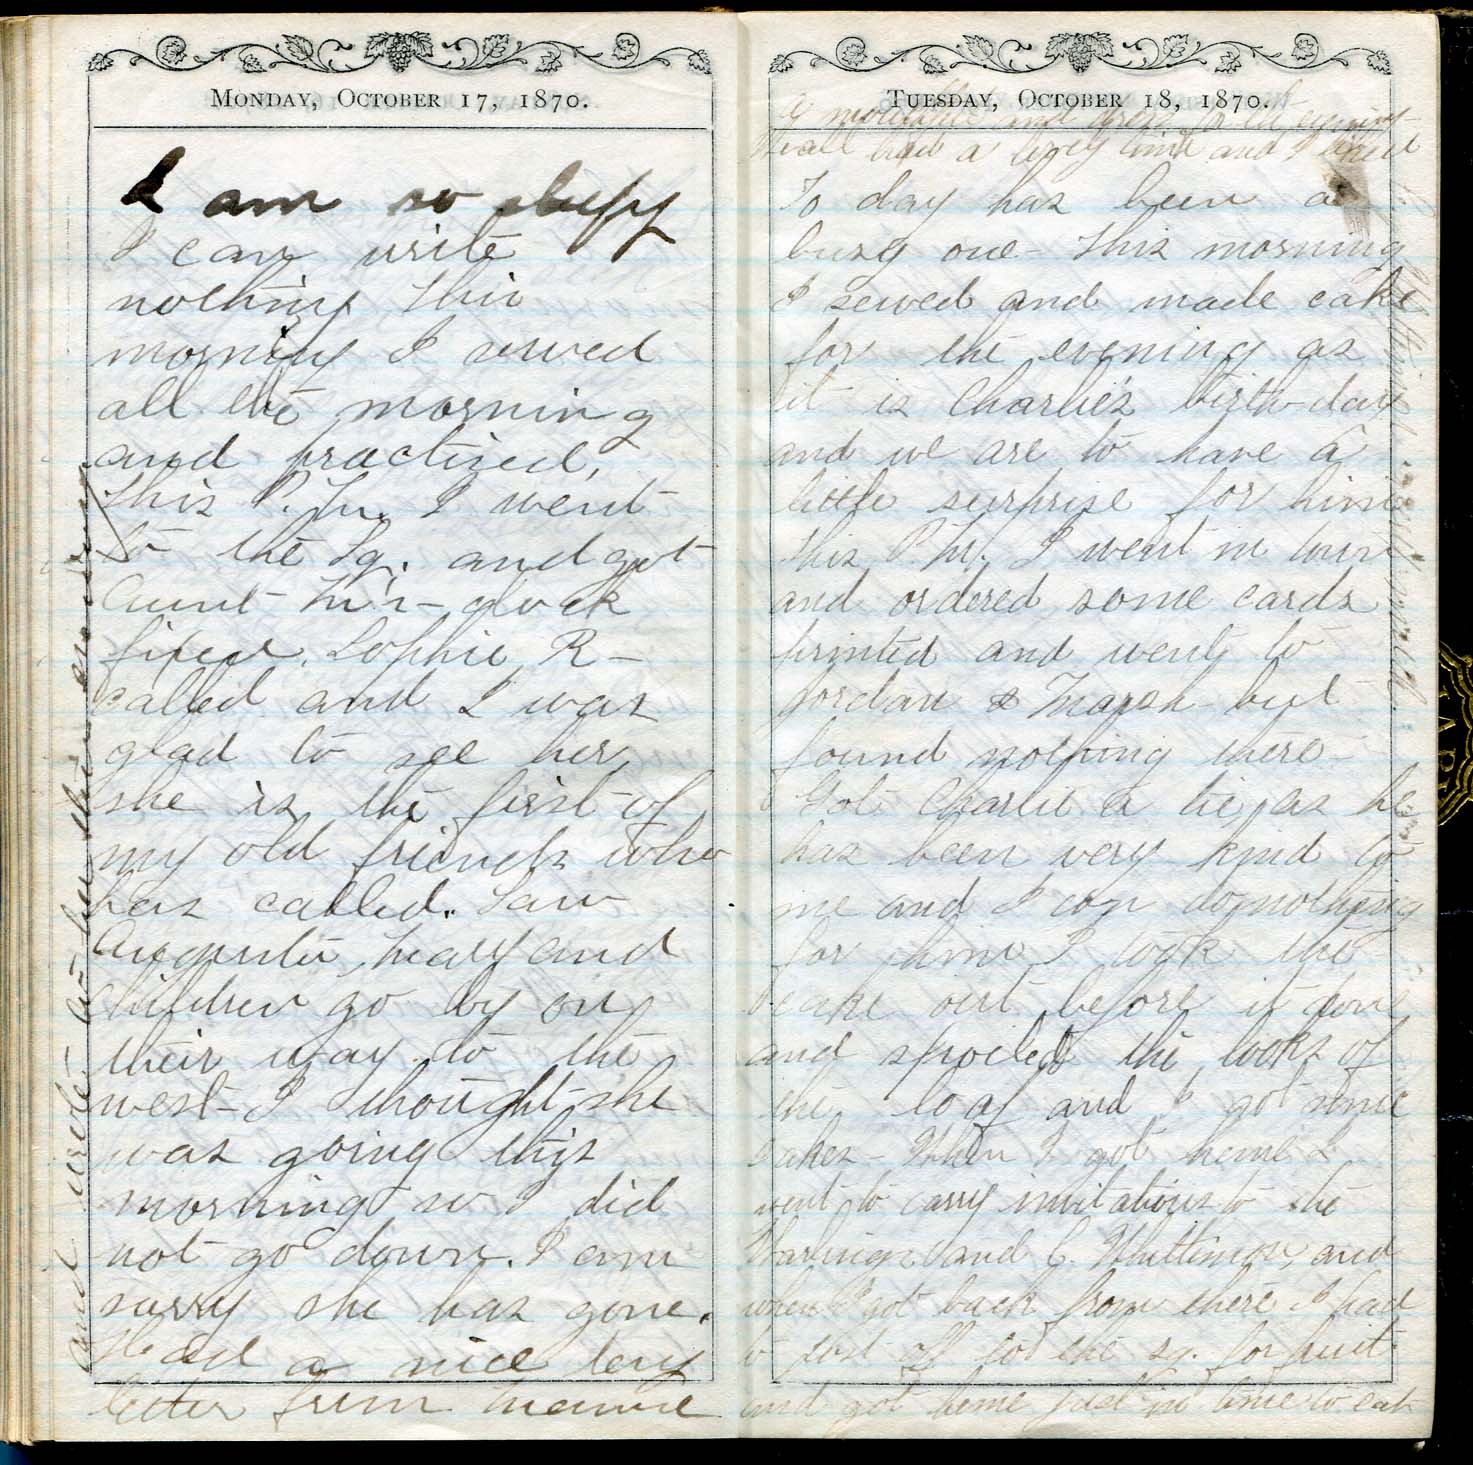 Monday, October 17, 1870.
I am so sleepy
I can write
nothing this
morning I sewed
all the morning
and practised,
this P.M. I went
to the Sq. and got
Aunt M's clock
fixed. Sophie R-
called and I was
glad to see her
she is the first of
my old friends who
has called. Saw
Augusta, Mary and
children go by on
their way to the
west - I thought she
was going this
morning so I did
not go down. I am
sorry she has gone.
Had a nice long
letter from Mamie
and wrote to her this evening
Tuesday, October 18, 1870.
To day has been a
busy one - This morning
I sewed and made cake
for the evening as
it is Charlie's birth-day
and we are to have a
little surprise for him
this P.M. I went in town
and ordered some cards
printed and went to
Jordan & Marsh but
found nothing there -
Got Charlie a tie, as he
has been very kind to
me and I can do nothing
for him I took the
cake out before it done
and spoiled the looks of
the loaf and I got some
cakes - When I got home I
went to carry invitations to the
and C. Whittimore, and
when I got back from there I had
to post off to the sq. for fruit
and got home just in time to eat
a mouthful and dress for the evening
We all had a very time and I